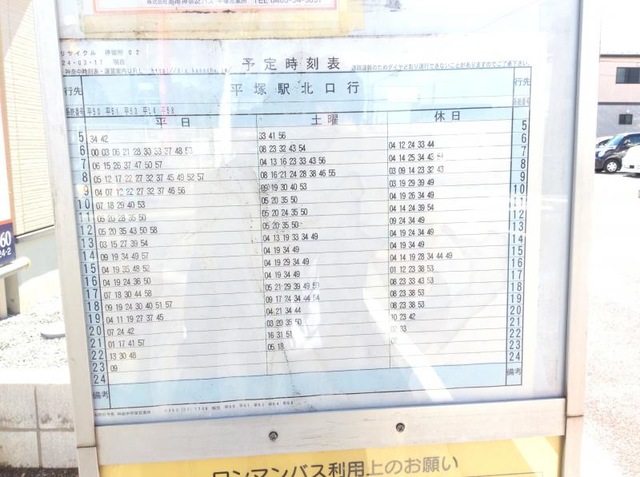 予定時刻表
道路混雑のためダイヤどおり運行できないことがありますのでご了承下さい。
行先 平塚駅北口行 行先
平日 土曜 休日
5 34 42 33 41 56 5
6 00 03 06 21 28 30 33 37 48 53 08 23 32 43 54 04 12 24 33 44 6
7 06 15 26 37 47 50 57 04 13 16 23 33 43 56 04 14 25 34 43 7
8 05 12 17 22 27 32 37 45 49 52 57 08 16 21 24 28 38 46 55 03 09 14 23 32 43 8
9 04 07 12 22 27 32 37 46 56 19 30 40 53 03 19 29 39 49 9
10 07 18 29 40 53 05 20 35 50 04 19 34 49 10
11 05 20 28 35 50 05 20 24 35 50 04 14 24 39 54 11
12 05 20 35 43 50 58 05 20 35 50 09 24 34 49 12
13 03 15 27 39 54 04 13 19 33 34 49 04 19 34 49 13
14 09 19 34 49 57 04 19 29 34 49 04 19 34 49 14
15 04 19 35 48 52 04 19 34 49 04 14 19 28 34 44 49 15
16 04 19 24 36 50 04 19 34 49 01 12 23 38 53 16
17 07 18 30 44 58 05 21 29 39 49 08 23 33 43 53 17
18 09 19 24 30 40 51 57 09 17 24 34 44 08 23 38 53 18
19 04 11 19 27 37 45 04 21 34 44 08 23 38 53 19
20 07 24 42 03 20 35 50 10 23 42 20
21 01 17 41 57 16 31 51 21
22 13 30 48 05 18 22
23 09 23
24 24
備考 備考
ワンマンバス利用上のお願い